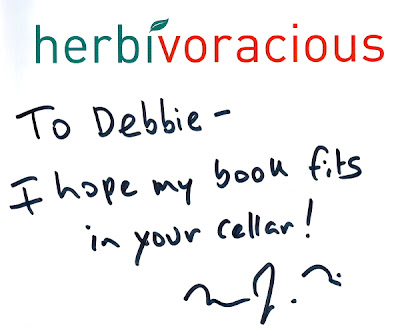 herbivoracious
To Debbie -
I hope my book fits
in your cellar!